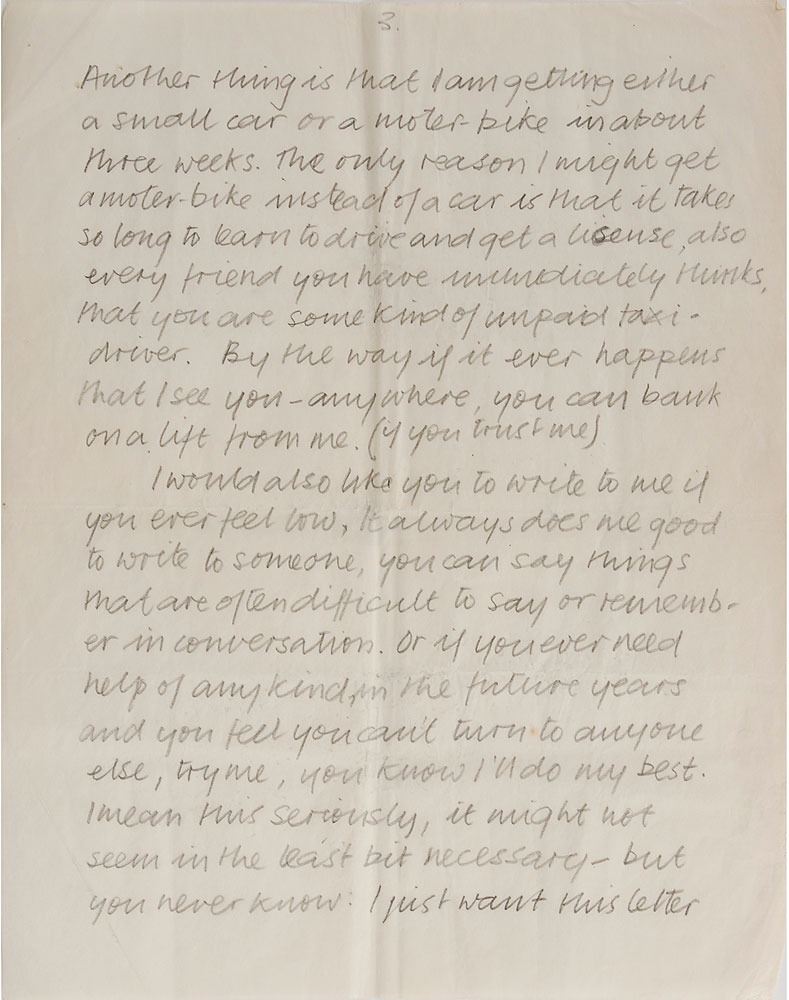 3.
Another thing is that I am getting either
a small car or a moter-bike in about
three weeks. The only reason I might get
a moter-bike instead of a car is that it takes
so long to learn to drive and get a lisense, also
every friend you have immediately thinks,
that you are some kind of unpaid taxi-
driver. By the way if it ever happens
that I see you – anywhere, you can bank
on a lift from me. (if you trust me)
I would also like you to write to me if
you ever feel low, It always does me good
to write to someone, you can say things
that are often difficult to say or rememb-
er in conversation. Or if you ever need
help of any kind, in the future years
and you feel you can't turn to anyone
else, try me, you know I'll do my best.
I mean this seriously, it might not
seem in the least bit necessary – but
you never know. I just want this letter